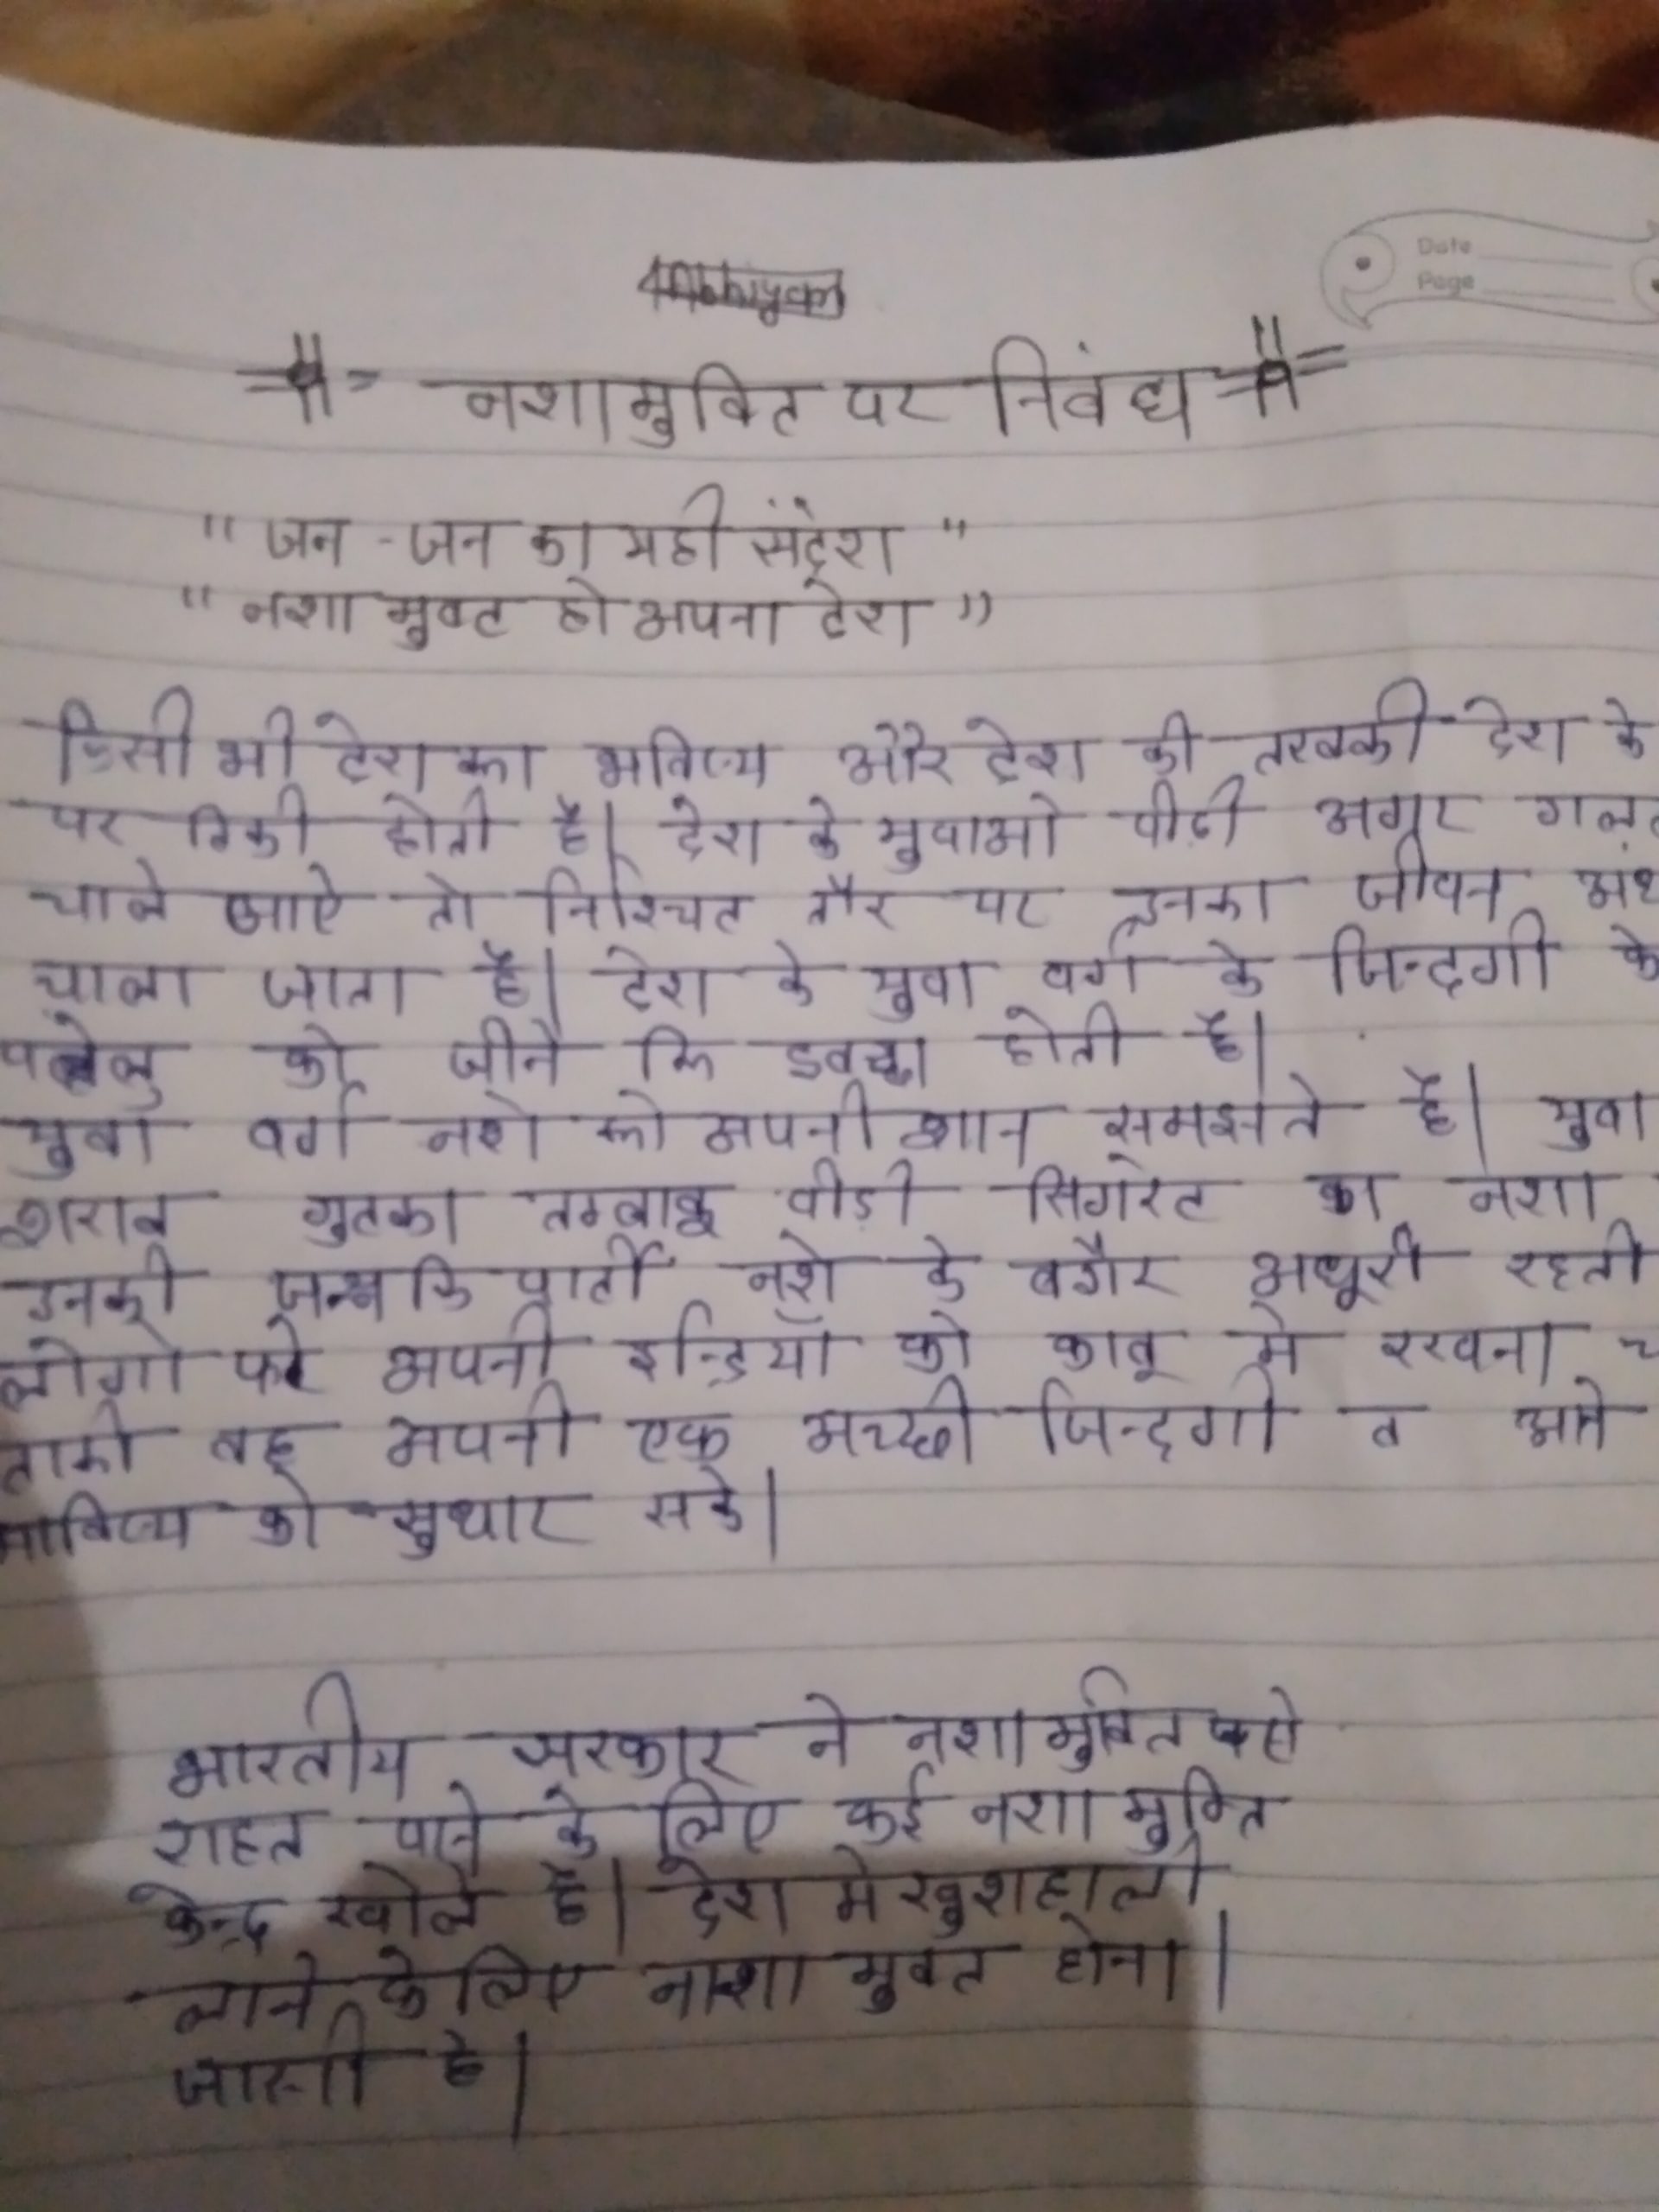 Date
Page
नशामुक्ति पर निबंध
" जन - जन का यही संदेश "
" नशा मुक्त हो अपना देश "
किसी भी देश का भविष्य और देश की तरक्की देश के
पर टिकी होती है। देश के युवाओ पीढ़ी अगर गलत
चाले जाऐ तो निश्चित तौर पर इनका जीवन अंध
चाला जाता है। देश के युवा वर्ग के जिन्दगी के
को जीने कि इक्छा होती है।
युवा वर्ग नशे को अपनी शान समझते है। युवा
शराब गुटका तम्बाकू बीड़ी सिगरेट का नशा
उनकी जश्न कि पार्टी नशे के बगैर अधूरी रहती
लोगो को अपनी इन्द्रियाँ को काबू मे रखना च
ताकी वह अपनी एक अच्छी जिन्दगी व आने
भविष्य को सुधार सके।
भारतीय सरकार ने नशा मुक्ति से
राहत पाने के लिए कई नशा मुक्ति
केन्द्र खोले है। देश मे खुशहाली
लाने के लिए नाशा मुक्त होना।
है।